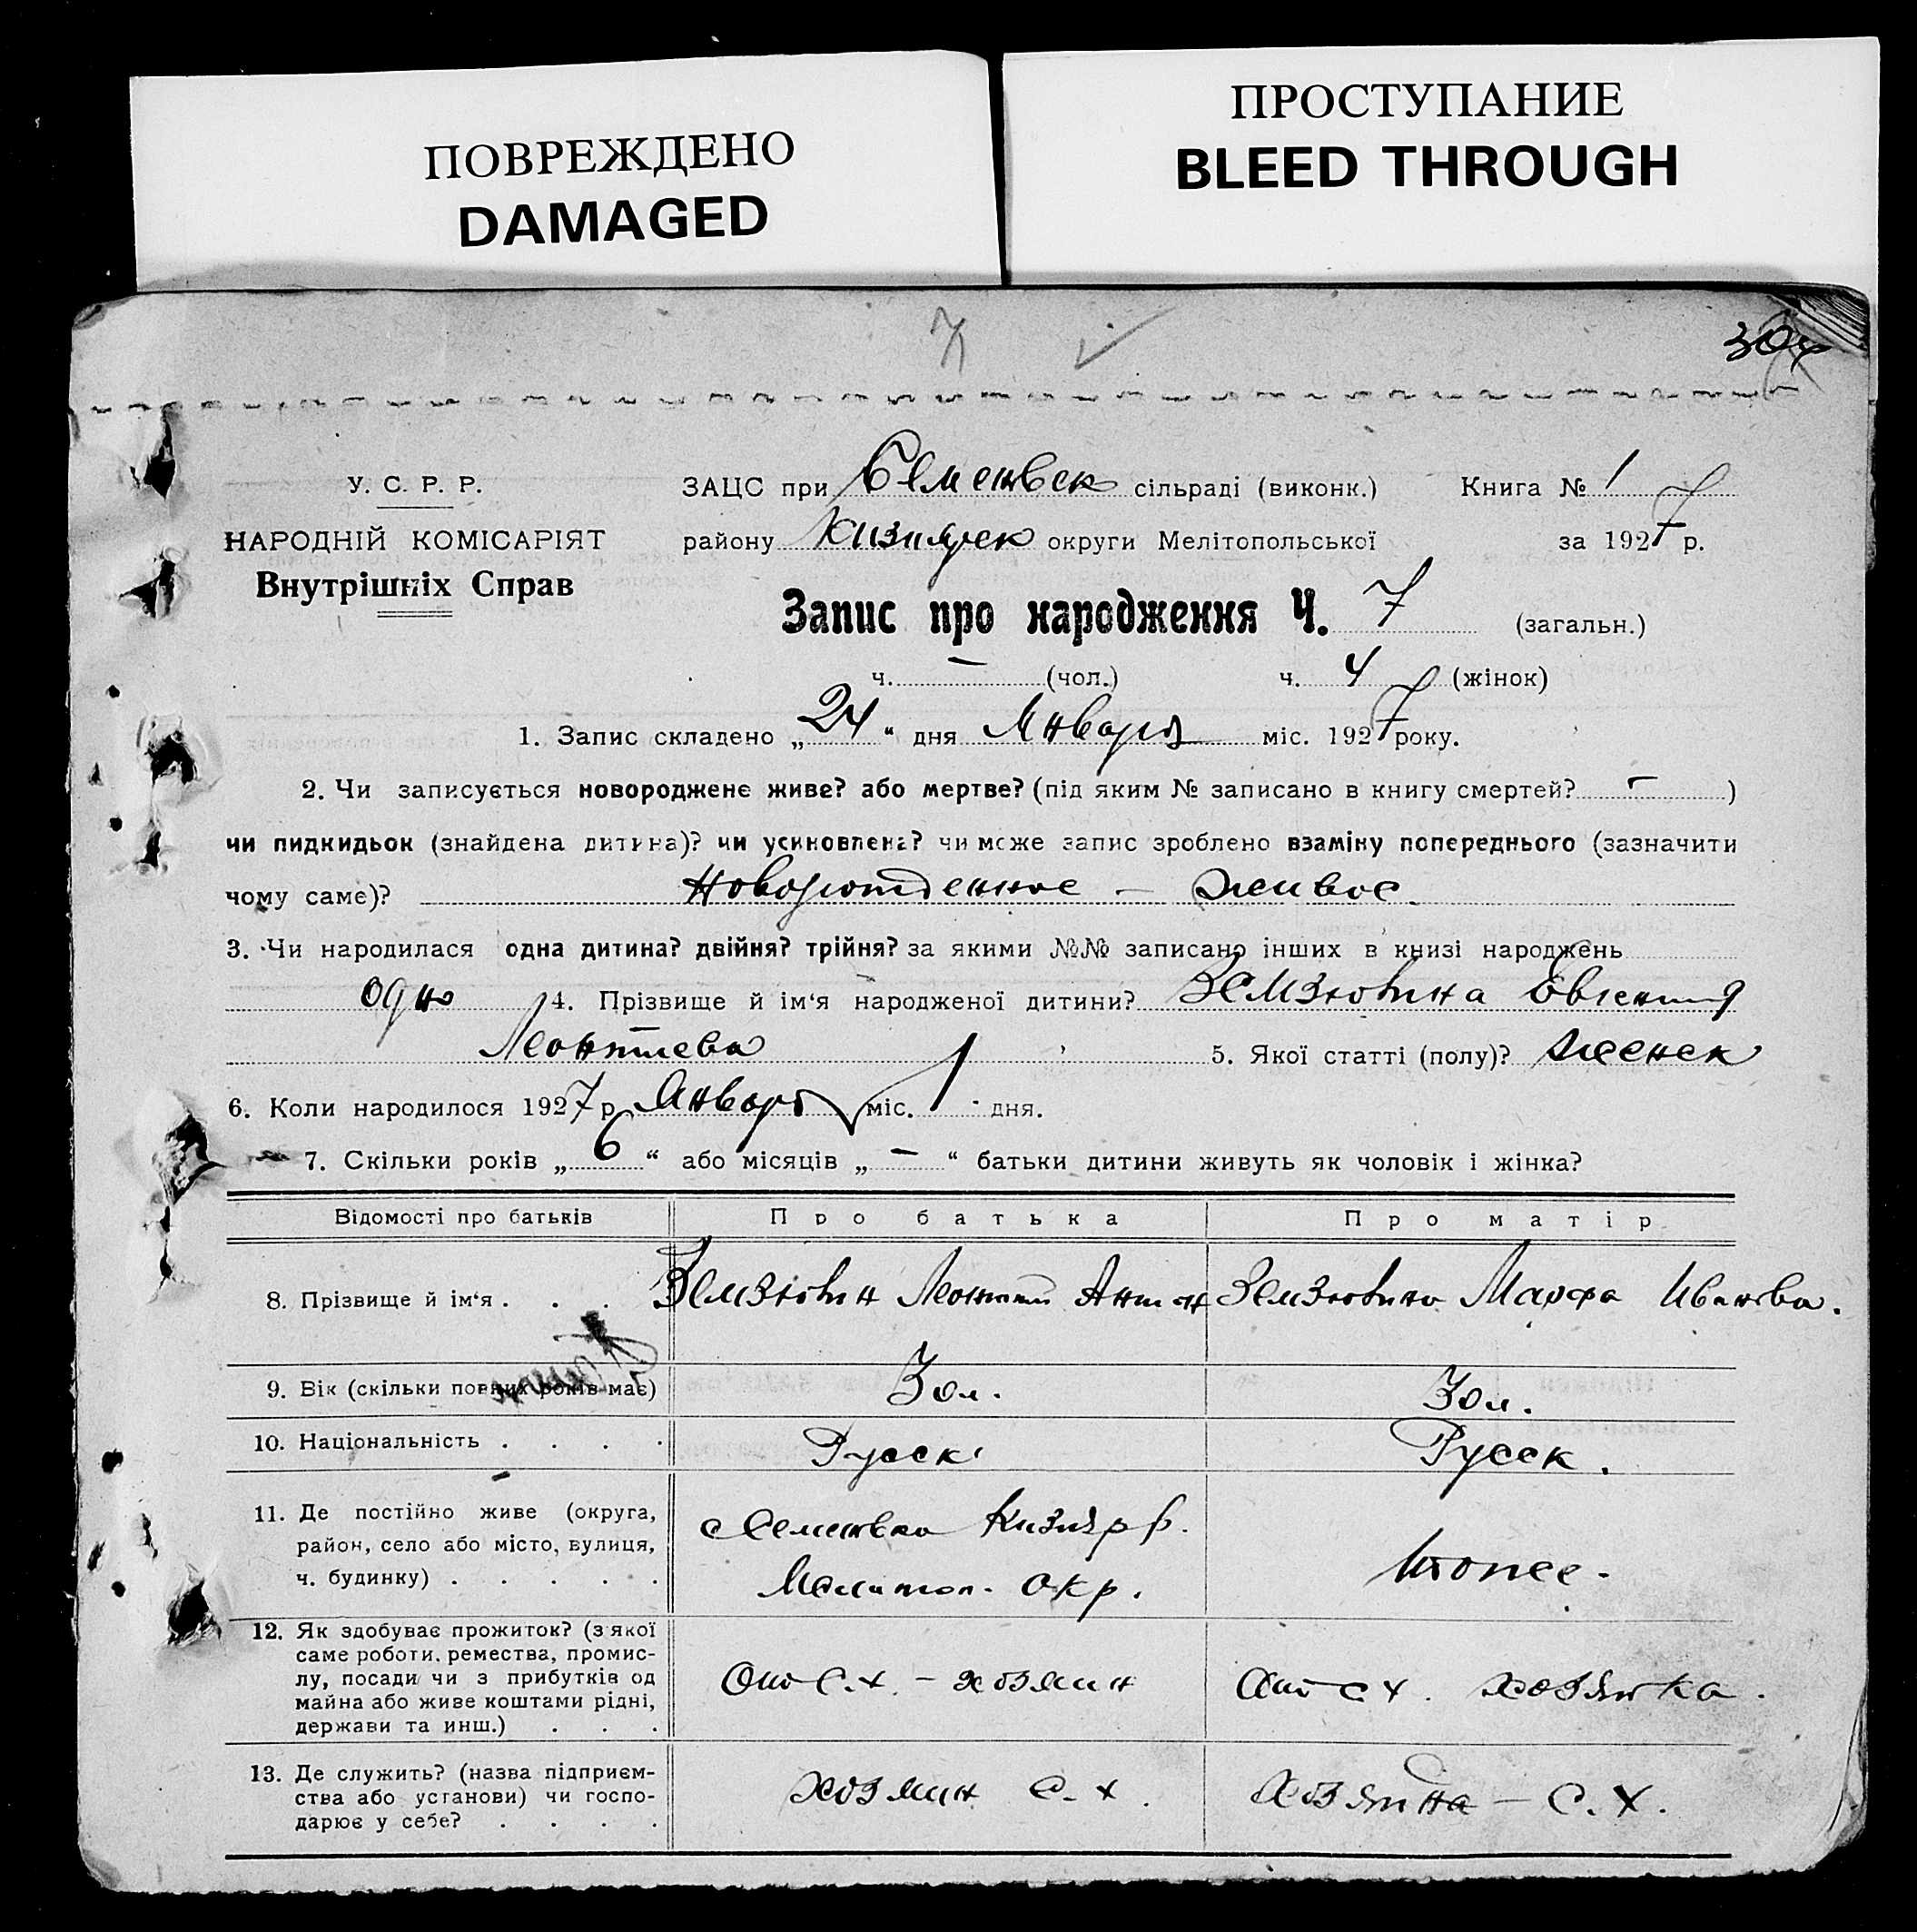 ПОВРЕЖДЕНО
DAMAGED
ПРОСТУПАНИЕ
BLEED THROUGH
7 ✓
У. С. Р. Р.
НАРОДНІЙ КОМІСАРІЯТ
Внутрішніх Справ
ЗАЦС при Семеновск сільраді (виконк.) Книга № 1
району Кизиярск округи Мелітопольської за 1927 р.
Запис про народження Ч. 7 (загальн.)
ч. — (чол.) ч. 4 (жінок)
1. Запис складено „24“ дня Января міс. 1927 року.
2. Чи записується новороджене живе? або мертве? (під яким № записано в книгу смертей? — )
чи пидкидьок (знайдена дитина)? чи усиновлена? чи може запис зроблено взаміну попереднього (зазначити
чому саме)? Новорожденное — живое.
3. Чи народилася одна дитина? двійня? трійня? за якими №№ записано інших в книзі народжень
одно 4. Прізвище й ім‘я народженої дитини? Земзюлина Евгения
Леонтиева 5. Якої статті (полу)? женск
6. Коли народилося 1927 р. Января міс. 1 дня.
7. Скільки років „6“ або місяців „—“ батьки дитини живуть як чоловік і жінка?
Відомості про батьків Про батька Про матір
8. Прізвище й ім‘я . . . Земзюлин Леонтий Антон Земзюлина Марфа Иванова.
9. Вік (скільки повних років має) 30 л. 30 л.
10. Національність . . . . Русск. Русск.
11. Де постійно живе (округа,
район, село або місто, вулиця,
ч. будинку) . . . . .
с Семеновка Кизияр р.
Мелитоп. окр.
Тоже.
12. Як здобуває прожиток? (з якої
саме роботи, ремества, промис-
лу, посади чи з прибутків од
майна або живе коштами рідні,
держави та инш.) . . .
С.х. – хозяин
с х. хозяйка.
13. Де служить? (назва підприєм-
ства або установи) чи госпо-
дарює у себе? . . . .
хозяин С.х.
С.х.